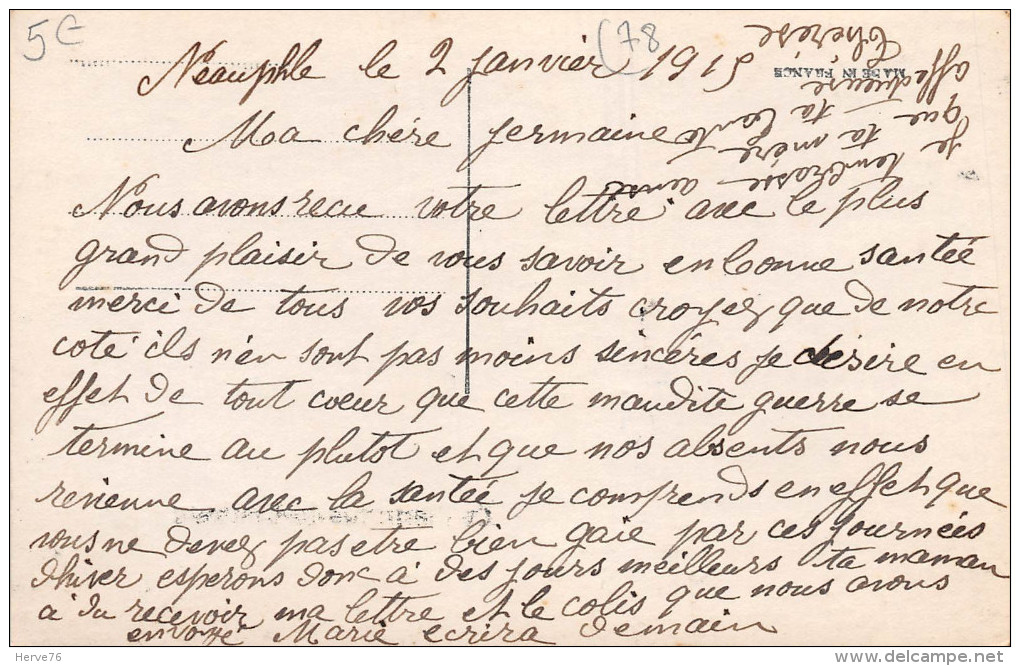 5€
(78
Neauphle le 2 janvier 1915
Ma chère Germaine
Nous avons recu votre lettre avec le plus
grand plaisir de vous savoir en bonne santée
merci de tous vos souhaits croyez que de notre
coté ils n'en sont pas moins sincéres je désire en
effet de tout coeur que cette maudite guerre se
termine au plutot et que nos absents nous
revienne avec la santée je comprends en effet que
vous ne devez pas etre bien gaie par ces journées
d'hiver esperons donc à des jours meilleurs ta maman
à du recevoir ma lettre et le colis que nous avons
envoyé Marie ecrira demain
je tembrasse ainsi
que ta mère ta tante
affectueuse
Thérèse
MADE IN FRANCE
Herve76